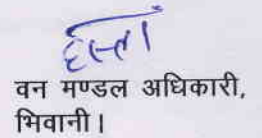 हस्ता/
वन मण्डल अधिकारी,
भिवानी।